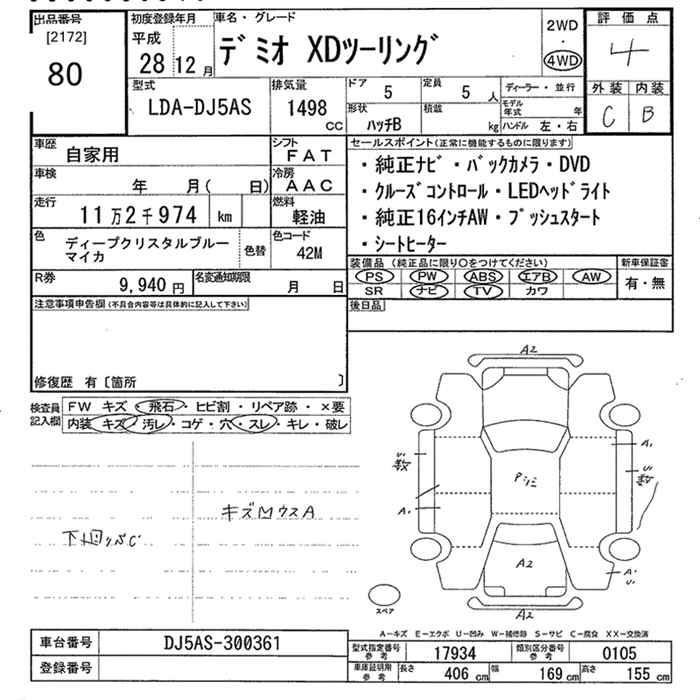 出品番号
[2172]
80
初度登録年月
平成
28 12 月
車名・グレード
デミオ XDツーリング
2WD
・
4WD
評価点
4
外装 内装
C B
型式
LDA-DJ5AS
排気量
1498
CC
ドア 5
定員 5 人
形状
ハッチB
積載
kg
ディーラー・並行
モデル年式 年
ハンドル 左・右
車歴
自家用
シフト
FAT
車検
年 月( 日)
冷房
AAC
走行
11万2千974 km
燃料
軽油
色
ディープクリスタルブルー
マイカ
色替
色コード
42M
R券
9,940 円
名変通知期限
月 日
セールスポイント(正常に機能するものに限ります)
・純正ナビ・バックカメラ・DVD
・クルーズコントロール・LEDヘッドライト
・純正16インチAW・プッシュスタート
・シートヒーター
装備品(純正品に限り○をつけてください)
PS PW ABS エアB AW
SR ナビ TV カワ
新車保証書
有・無
後日品
注意事項申告欄(不具合内容等は具体的に記入して下さい)
修復歴 有〔箇所 〕
検査員
記入欄
FW キズ・飛石・ヒビ割・リペア跡・×要
内装 キズ・汚レ・コゲ・穴・スレ・キレ・破レ
A2
U1
A1
U1
A1
A2
A1
U1
A2
スペア
A－キズ E－エクボ U－凹み W－補修跡 S－サビ C－腐食 XX－交換済
車台番号
DJ5AS-300361
登録番号
型式指定番号
参考
17934
類別区分番号
参考
0105
車庫証明用
参考
長さ 406 cm
幅 169 cm
高さ 155 cm